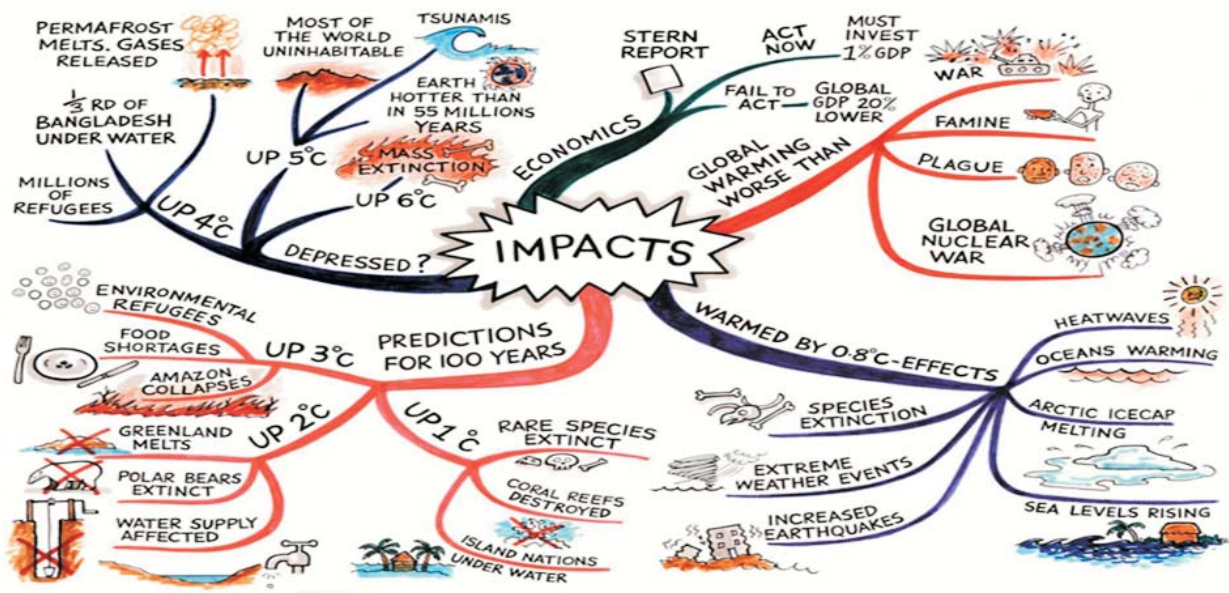 IMPACTS
ECONOMICS
STERN
REPORT
ACT
NOW
MUST
INVEST
1% GDP
FAIL TO
ACT
GLOBAL
GDP 20%
LOWER
GLOBAL
WARMING
WORSE THAN
WAR
FAMINE
PLAGUE
GLOBAL
NUCLEAR
WAR
WARMED BY 0.8°C-EFFECTS
HEATWAVES
OCEANS WARMING
ARCTIC ICECAP
MELTING
SEA LEVELS RISING
SPECIES
EXTINCTION
EXTREME
WEATHER EVENTS
INCREASED
EARTHQUAKES
PREDICTIONS
FOR 100 YEARS
UP 1°C
RARE SPECIES
EXTINCT
CORAL REEFS
DESTROYED
ISLAND NATIONS
UNDER WATER
UP 2°C
GREENLAND
MELTS
POLAR BEARS
EXTINCT
WATER SUPPLY
AFFECTED
UP 3°C
ENVIRONMENTAL
REFUGEES
FOOD
SHORTAGES
AMAZON
COLLAPSES
DEPRESSED?
UP 4°C
PERMAFROST
MELTS. GASES
RELEASED
1/3 RD OF
BANGLADESH
UNDER WATER
MILLIONS
OF
REFUGEES
UP 5°C
MOST OF
THE WORLD
UNINHABITABLE
TSUNAMIS
EARTH
HOTTER THAN
IN 55 MILLIONS
YEARS
UP 6°C
MASS
EXTINCTION